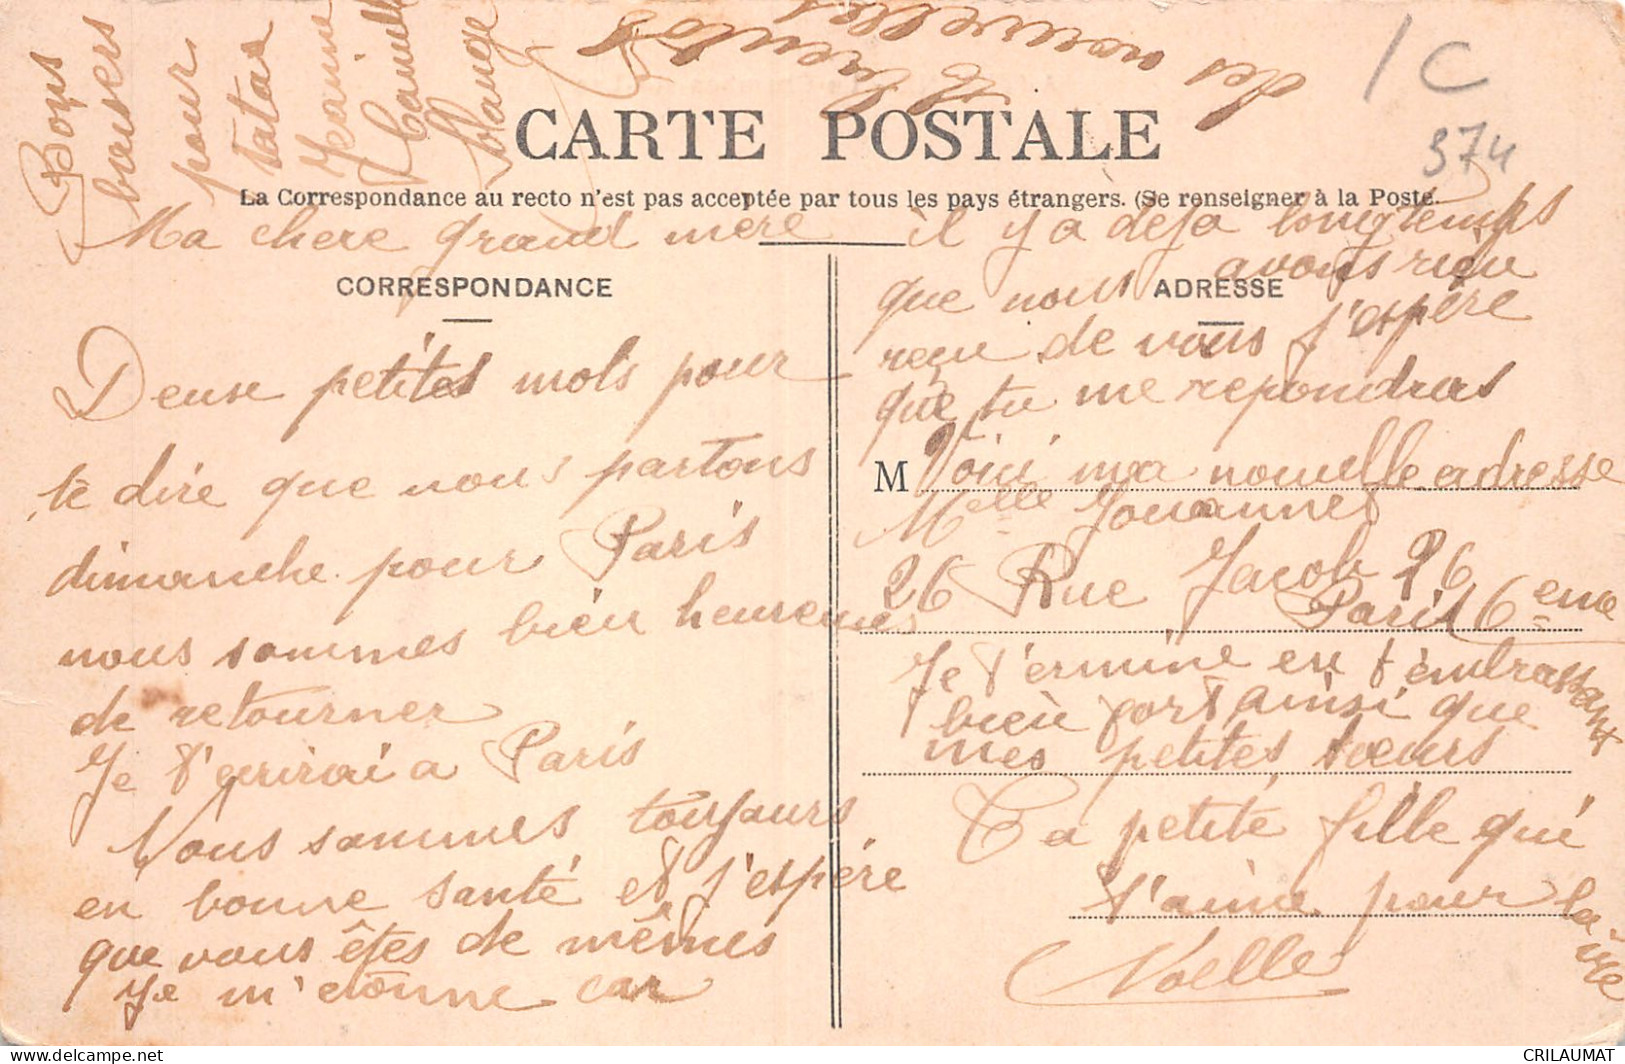 Bons
baisers
pour
tatas
Jeanine
Camille
Solange
des nouvelles
à bientôt
/ C
374
CARTE POSTALE
La Correspondance au recto n'est pas acceptée par tous les pays étrangers. (Se renseigner à la Poste.
Ma chere grand mere
CORRESPONDANCE
Deuse petites mols pour
te dire que nous partons
dimanche pour Paris
nous sommes bien heureuses
de retourner
Je t'ecrirai a Paris
Nous sommes toujours
en bonne santé et j'espére
que vous êtes de mêmes
Je m'etonne car
il y a deja longtemps
que nous avons reçu
ADRESSE
reçu de vous j'espére
que tu me repondras
M Voici ma nouvelle adresse
Melle Jouannet
26 Rue Jacob 26
Paris 6eme
Je termine en t'embrassant
bien fort ainsi que
mes petites sœurs
Ta petite fille qui
t'aime pour la vie
Noelle
delcampe.net
CRILAUMAT